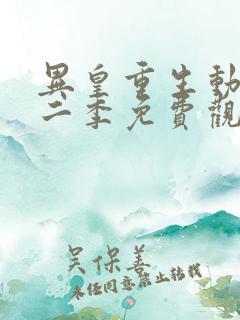 異皇重生動
二季免費觀
吴保善
未经同意禁止转载